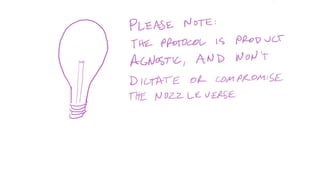 PLEASE NOTE:
THE PROTOCOL IS PRODUCT
AGNOSTIC, AND WON'T
DICTATE OR COMPROMISE
THE NOZZLEVERSE